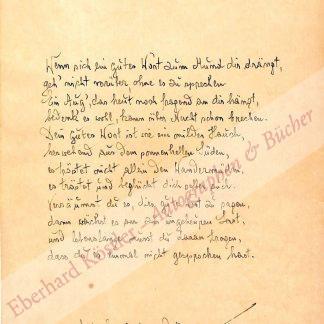 Wenn sich ein gutes Wort zum Mund dir drängt,
geh' nicht vorüber, ohne es zu sprechen.
Ein Aug', das heut noch fragend an dir hängt,
bedenk' es wohl, kann über Nacht schon brechen.
Dein gutes Wort ist wie ein milder Hauch,
herwehend aus dem sonnenhellen Süden,
es tröstet nicht allein den
es tröstet und beglückt dich selber auch.
Versäumst du es, dies gute Wort zu sagen,
dann wächst es an zur ungeheuren
und lebenslänglich musst du daran tragen,
dass du es einmal nicht gesprochen hast.
Eberhard Köstler Autographen & Bücher